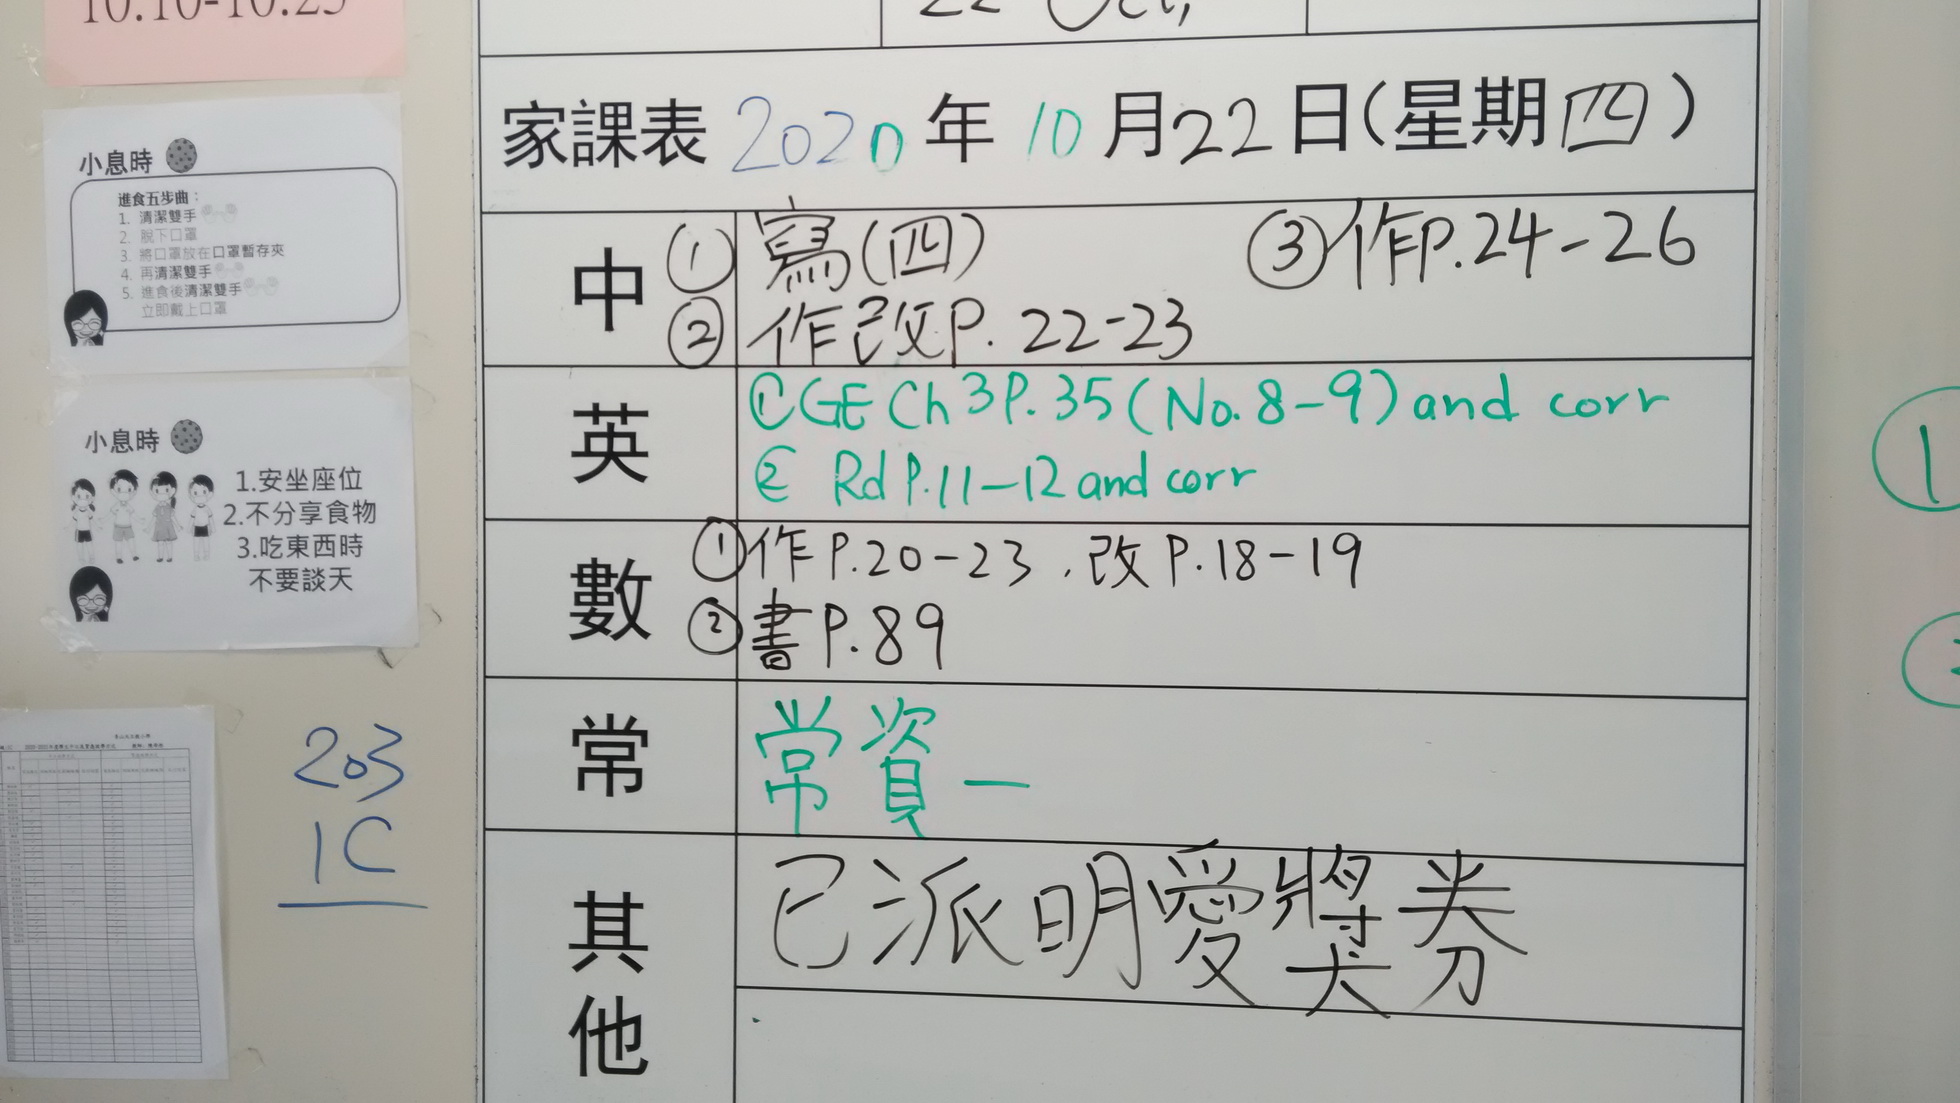 10.10-10.25
小息時
進食五步曲：
1. 清潔雙手
2. 脫下口罩
3. 將口罩放在口罩暫存夾
4. 再清潔雙手
5. 進食後清潔雙手
立即戴上口罩
小息時
1.安坐座位
2.不分享食物
3.吃東西時
不要談天
203
1C
22 Oct,
家課表 2020 年 10 月 22 日(星期四)
中 ① 寫(四) ③ 作P.24-26
② 作改P. 22-23
英 ① GE Ch 3 P. 35 (No. 8-9) and corr
② Rd P.11-12 and corr
數 ① 作 P.20-23 , 改 P.18-19
② 書 P.89
常 常資一
其他 已派明愛獎券
1